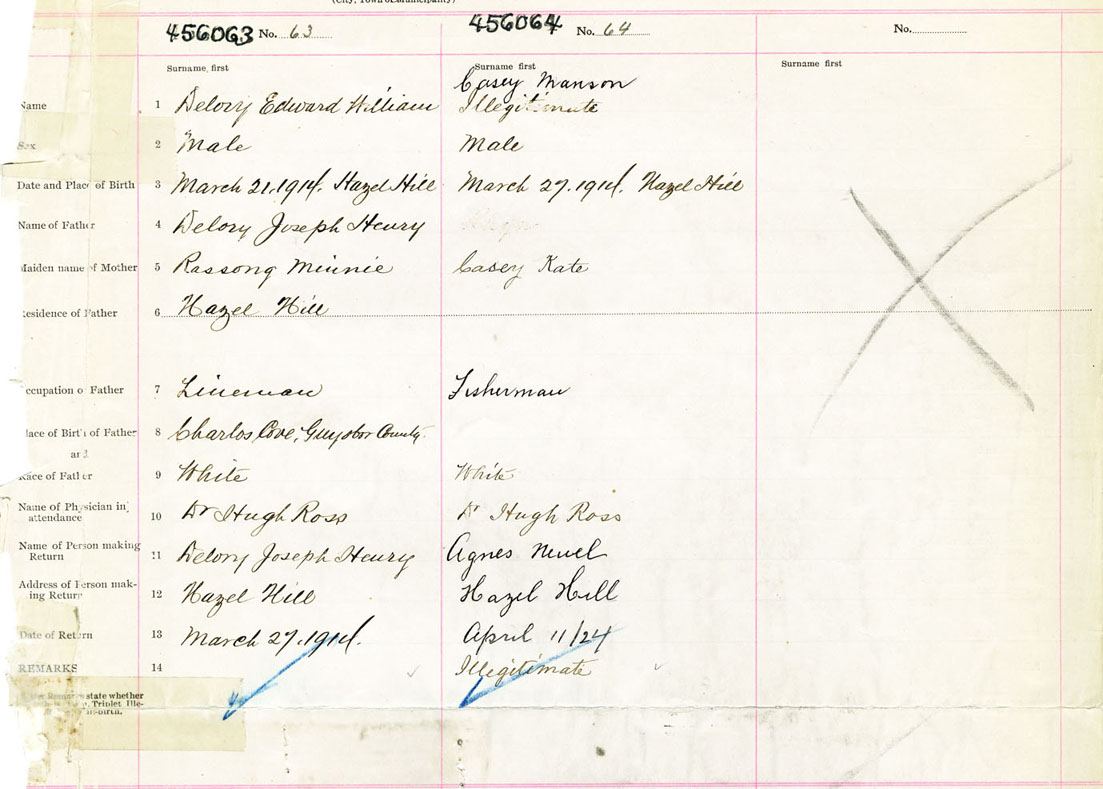 (City, Town or Municipality)
456063 No. 63
456064 No. 64
No.
Surname, first
Surname first
Surname first
Casey Manson
Name 1 Delory Edward William Illegitimate
Sex 2 Male Male
Date and Place of Birth 3 March 21.1914. Hazel Hill March 27.1914. Hazel Hill
Name of Father 4 Delory Joseph Henry
Maiden name of Mother 5 Rassong Minnie Casey Kate
Residence of Father 6 Hazel Hill
Occupation o Father 7 Lineman Fisherman
lace of Birth of Father 8 Charlos Cove, Guysbor County.
and
Race of Father 9 White White
Name of Physician in attendance 10 Dr Hugh Ross Dr Hugh Ross
Name of Person making Return 11 Delory Joseph Henry Agnes
Address of Person making Return 12 Hazel Hill Hazel Hill
Date of Return 13 March 27.1914. April 11/24
REMARKS 14 Illegitimate
state whether
Triplet Ille-